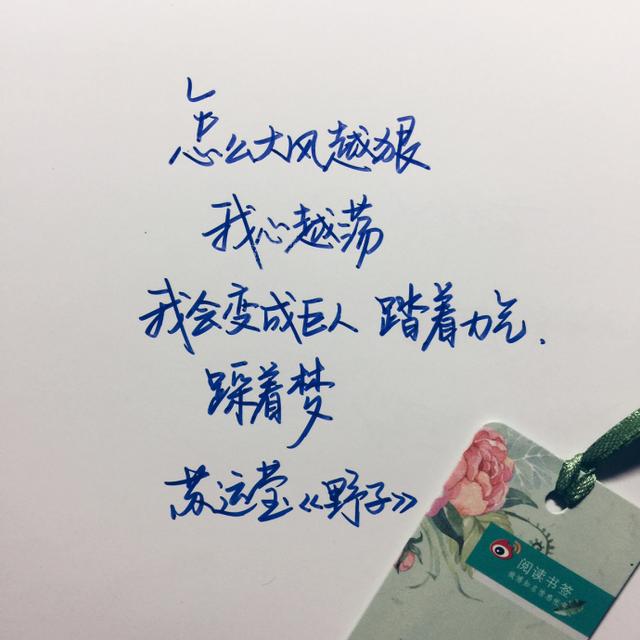 怎么大风越狠
我心越荡
我会变成巨人 踏着力气.
踩着梦
苏运莹《野子》
阅读书签